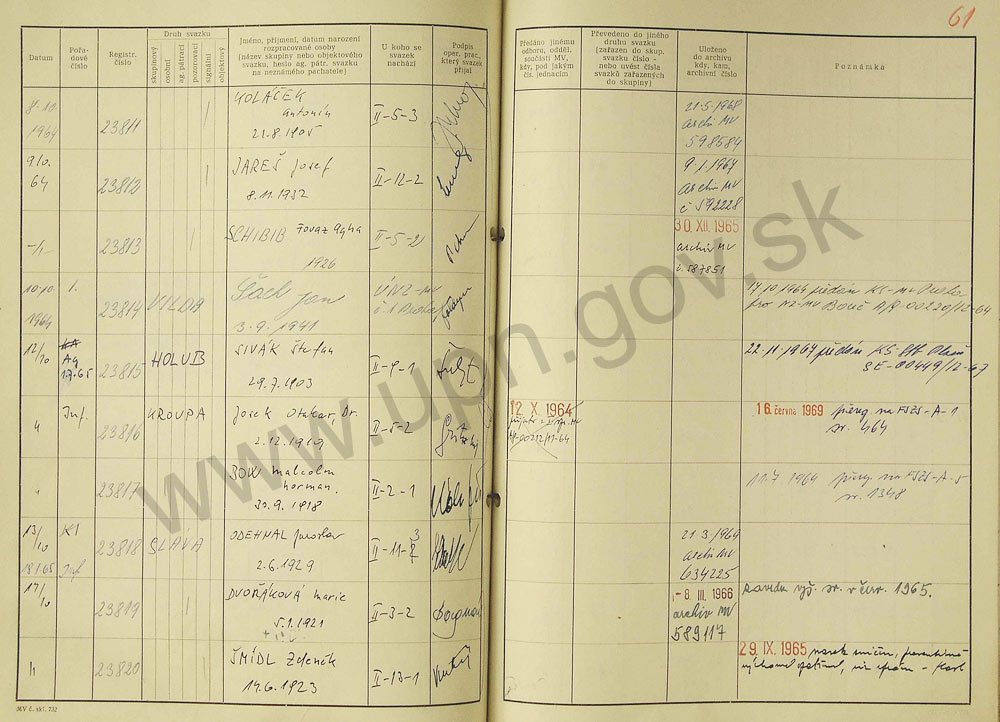 61
Datum
Pořadové číslo
Registr. číslo
Druh svazku
skupinový
osobní
ag. pátrací
pozorovací
signální
objektový
Jméno, příjmení, datum narození
rozpracované osoby
(název skupiny nebo objektového
svazku, heslo ag. pátr. svazku
na neznámého pachatele)
U koho se
svazek
nachází
Podpis
oper. prac.,
který svazek
přijal
Předáno jinému
odboru, odděl.
součásti MV,
kdy, pod jakým
čís. jednacím
Převedeno do jiného
druhu svazku
(zařazen do skup.
svazku číslo -
nebo uvést čísla
svazků zařazených
do skupiny)
Uloženo
do archivu
kdy, kam,
archivní číslo
Poznámka
1964
23811
KOLÁČEK
Antonín
21.8.1905
II-5-3
21.5.1968
Archiv MV
598584
9/10.
64
23812
JAREŠ Josef
8.11.1932
II-12-2
9.1.1967
Archiv MV
č 592228
23813
SCHIBIB Fovaz Agha
1926
II-5-2
30. XII. 1965
archiv MV
č. 587851
10.10.
1964
1.
23814
VILDA
Jan
3.9.1941
ÚNZ-MV
č. 1 Praha
předán KS-MV Praha
12/10
Ag
1.7.65
23815
HOLUB
SIVÁK Štefan
29.7.1903
II-9-1
22.11.1967 předán KS-StB Plzeň
SE-00449/12-67
"
Inf.
23816
KROUPA
Josek Otakar, Dr.
2.12.1919
II-5-2
12. X. 1964
16. června 1969 přereg. na FSZS-A-1
464
"
23817
BOW Malcolm
Norman.
30.9.1918
II-2-1
11.7 1964 přereg. na FSZS-A-5
1348
13/10
KI
18.1.65
Inf
23818
SLÁVA
ODEHNAL Jaroslav
2.6.1929
II-11-3
Archiv MV
634225
17/10
23819
DVOŘÁKOVÁ Marie
5.1.1921
II-3-2
-8. III. 1966
archiv MV
589117
v červ. 1965.
"
23820
ŠMÍDL Zdeněk
14.6.1923
II-13-1
29. IX. 1965 svazek zničen,
MV č. skl. 732
www.upn.gov.sk